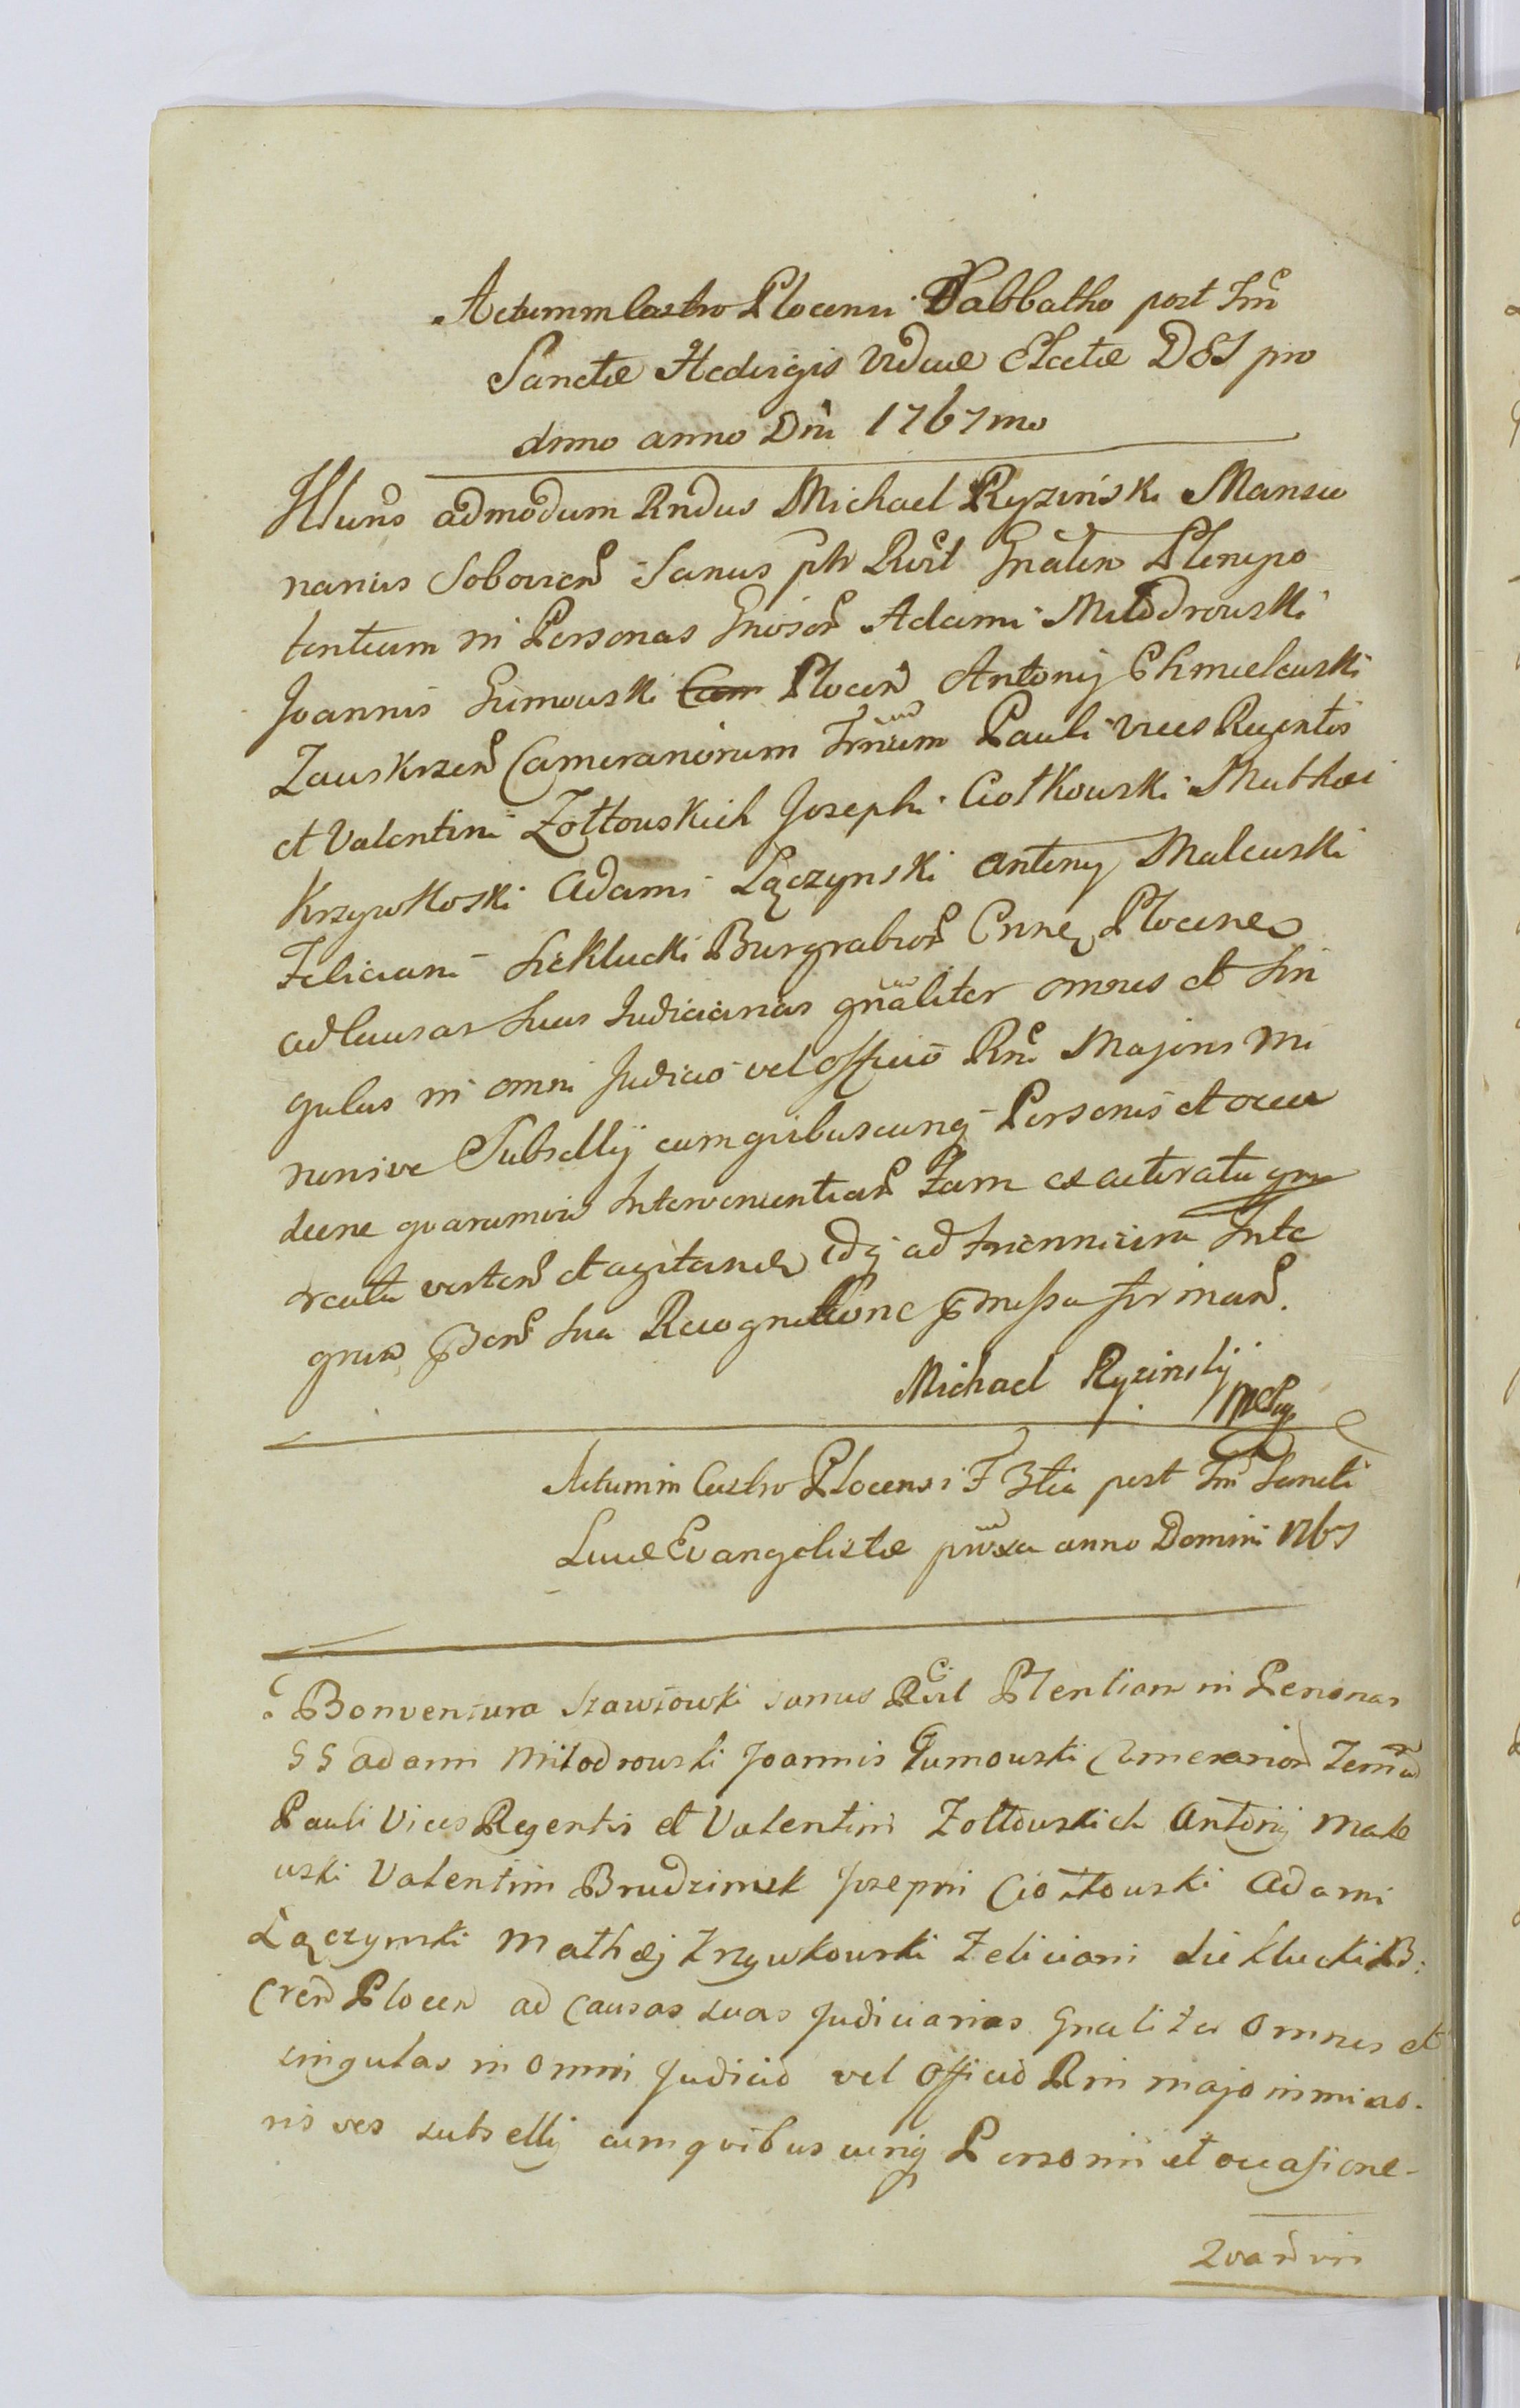 Actum in Castro Plocensi Sabbatho post Fm
Sanctæ Hedvigis Viduæ Electæ DEI pro
ximo anno Dni 1767mo
Illuris admodum Rndus Michael Ryzinski Mansio
narius Sobovien Sanus ptr Rcit Gnalen Plenipo
tentiam in Personas Gnosor Adami Miłodrowski
Joannis Gumowski Cam Plocen Antonij Chmielewski
Zawskrzen Camerariorum Trium Pauli Vices Regentis
et Valentini Zołtowskich Josephi Ciołkowski Mathæi
Krzywkoski Adami Łączynski Antony Malewski
Feliciani Siekłucki Burgrabior Cnne Plocen
ad Causas suas Judiciarias gnaliter omnes et sin
gulas in omni Judicio vel officio Rni Majoris mi
norisve Subsellij cum quibuscunq Personis et occa
sione quarumvis Interventian tam ex actoratu quam
reatu verten et agitan idq ad triennium Inte
grum pden sua Recognitione pmissa firman.
Michael Ryzinskij
mpp
Actum in Castro Plocensi F 3tia post Fm Sancti
Lucæ Evangelistæ proxa anno Domini 1767
G Bonventura Szawłowski sanus Rcit Plentiam in Personas
GG Adami Miłodrowski Joannis Gumowski Camerarior
Pauli Vices Regentis et Valentini Zołtowskich Antonij Male
wski Valentini Brudzinsk Josephi Ciołkowski Adami
Łączynski Mathæj Krzywkowski Feliciani Siekłucki B:
Cren Plocen ad Causas suas Judiciarias Gnaliter omnes et
singulas in omni Judicio vel officio Rni majoris mino
risves subsellij cum quibuscunq Personis et occasione
Quarvis